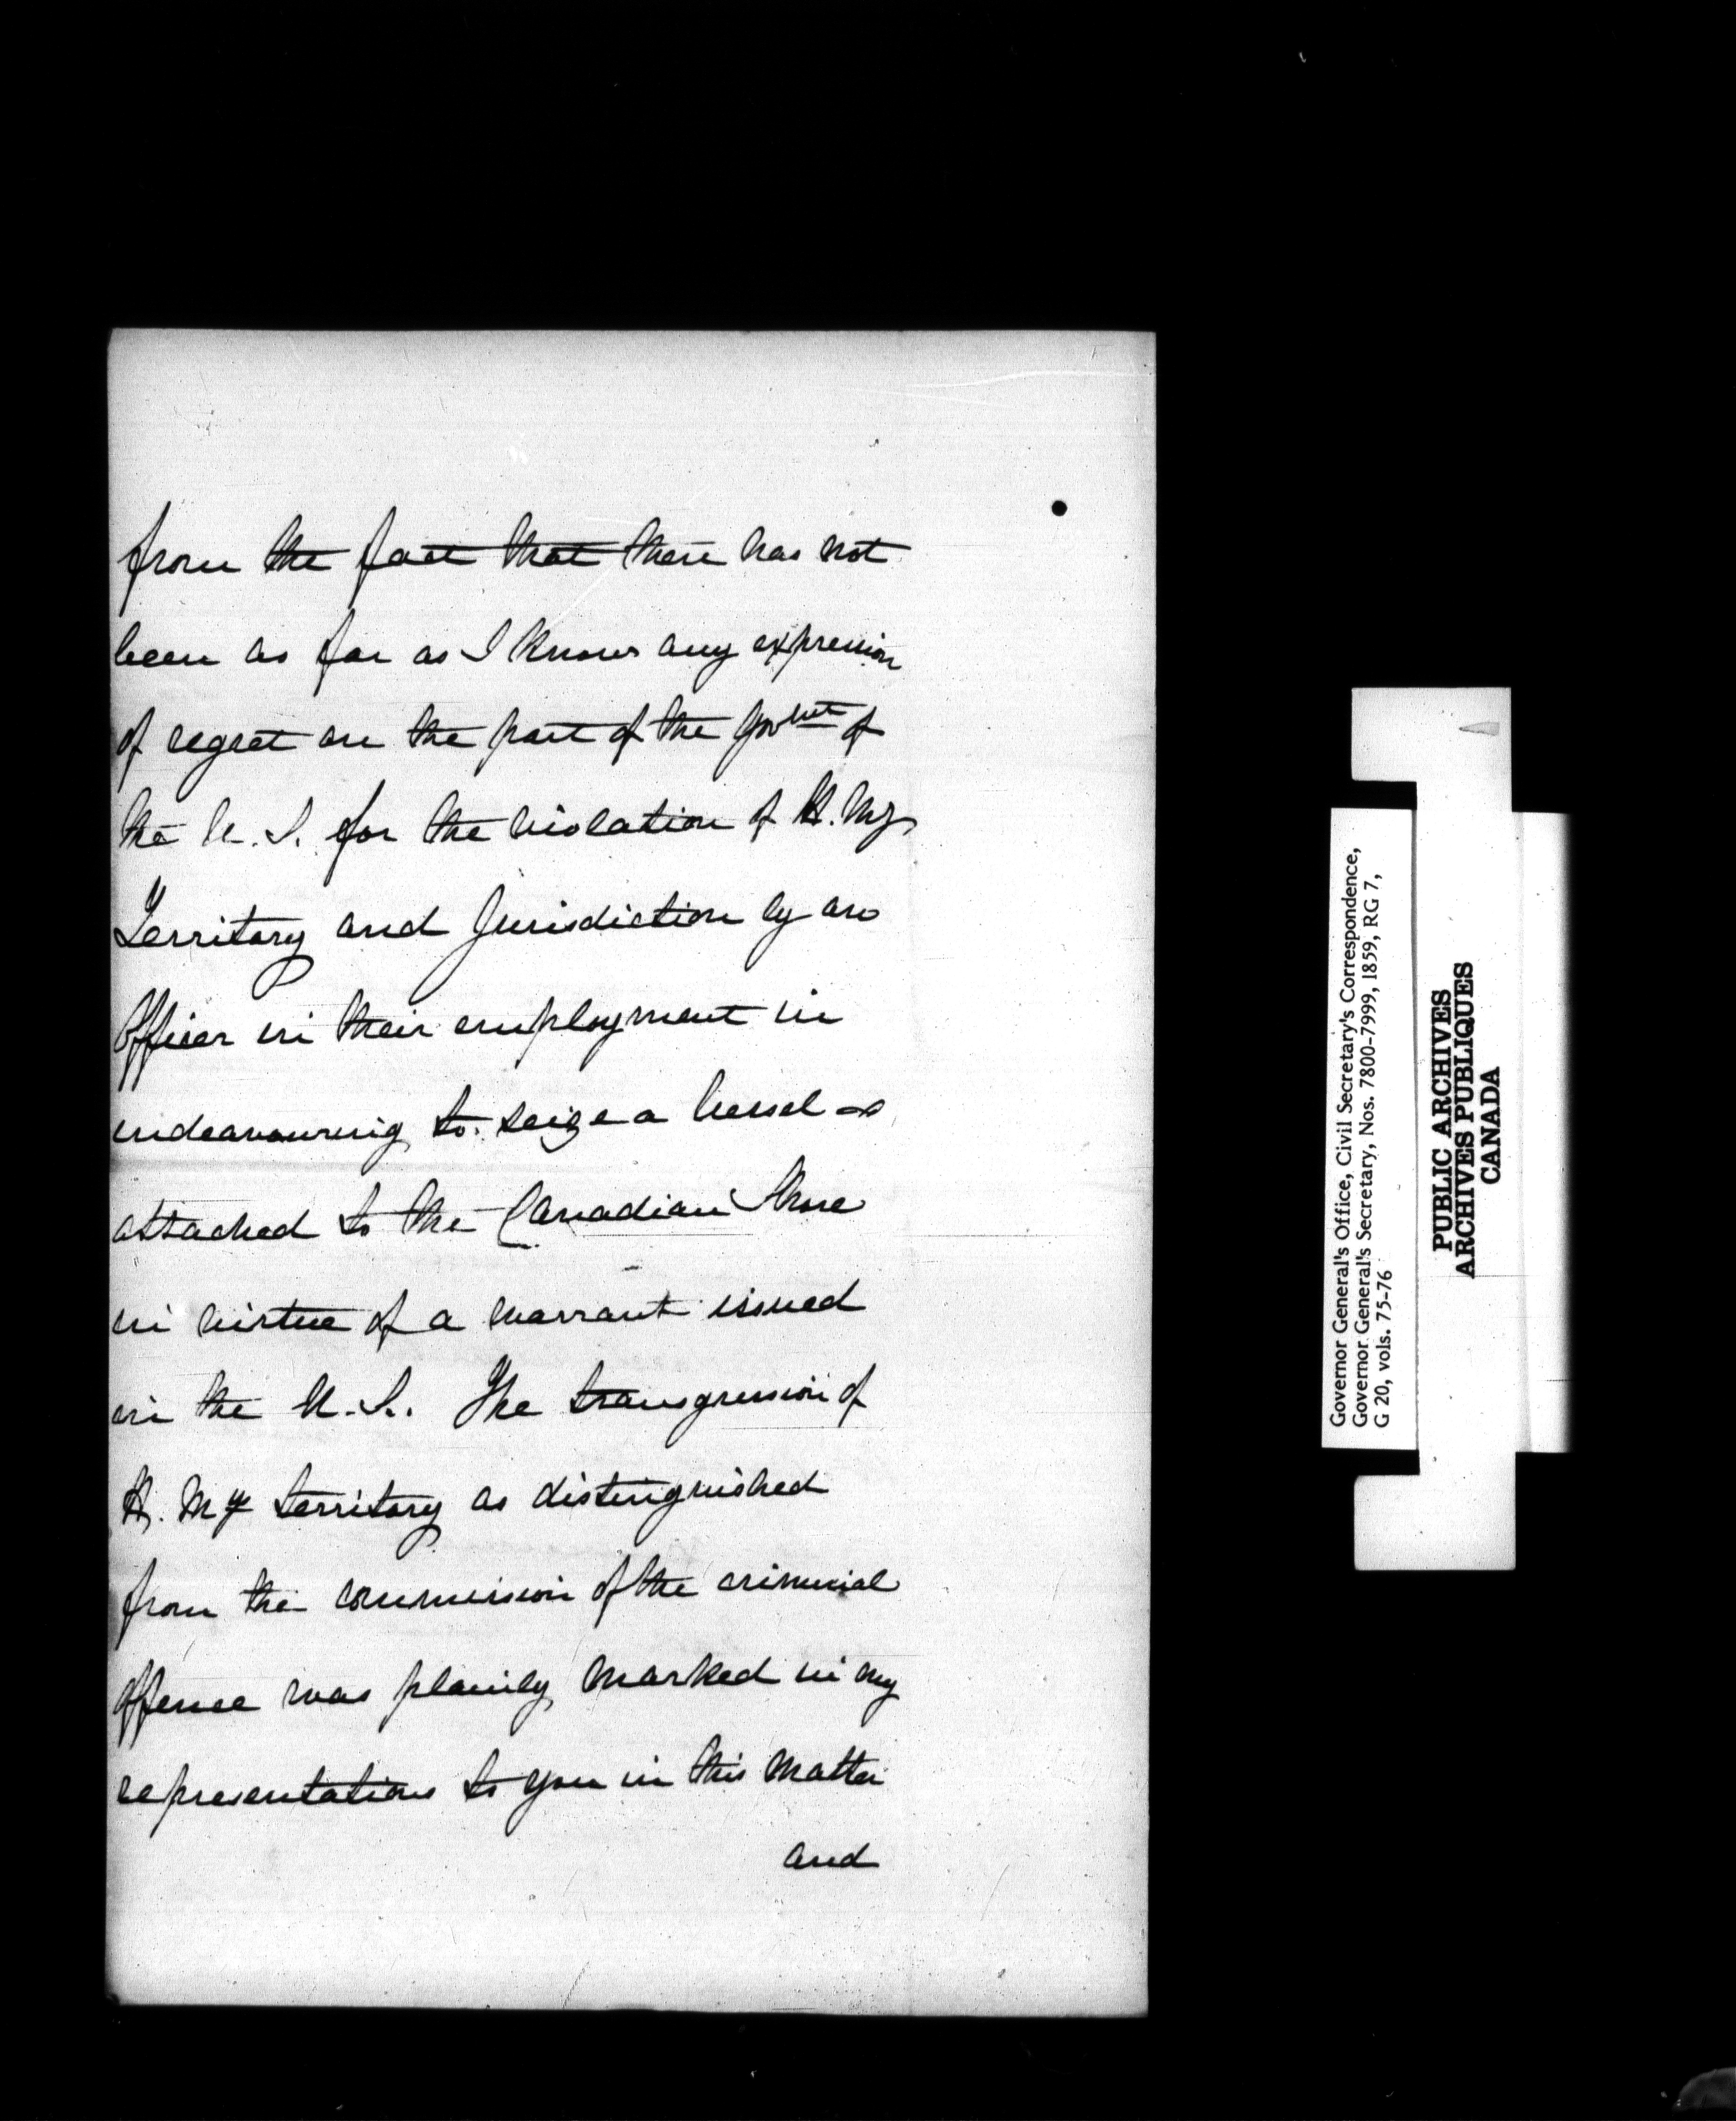 from the fact that there has not
been as far as I know any expression
of regret on the part of the Govmt of
the U. S. for the violation of H. My's
Territory and Jurisdiction by an
Officer in their employment in
endeavouring to seize a vessel
attached to the Canadian Shore
in virtue of a warrant issued
in the U. S. The transgression of
H. My's territory as distinguished
from the commission of the criminal
offence was plainly marked in my
representations to you in this matter
and
Governor General's Office, Civil Secretary's Correspondence,
Governor General's Secretary, Nos. 7800-7999, 1859, RG 7,
G 20, vols. 75-76
PUBLIC ARCHIVES
ARCHIVES PUBLIQUES
CANADA